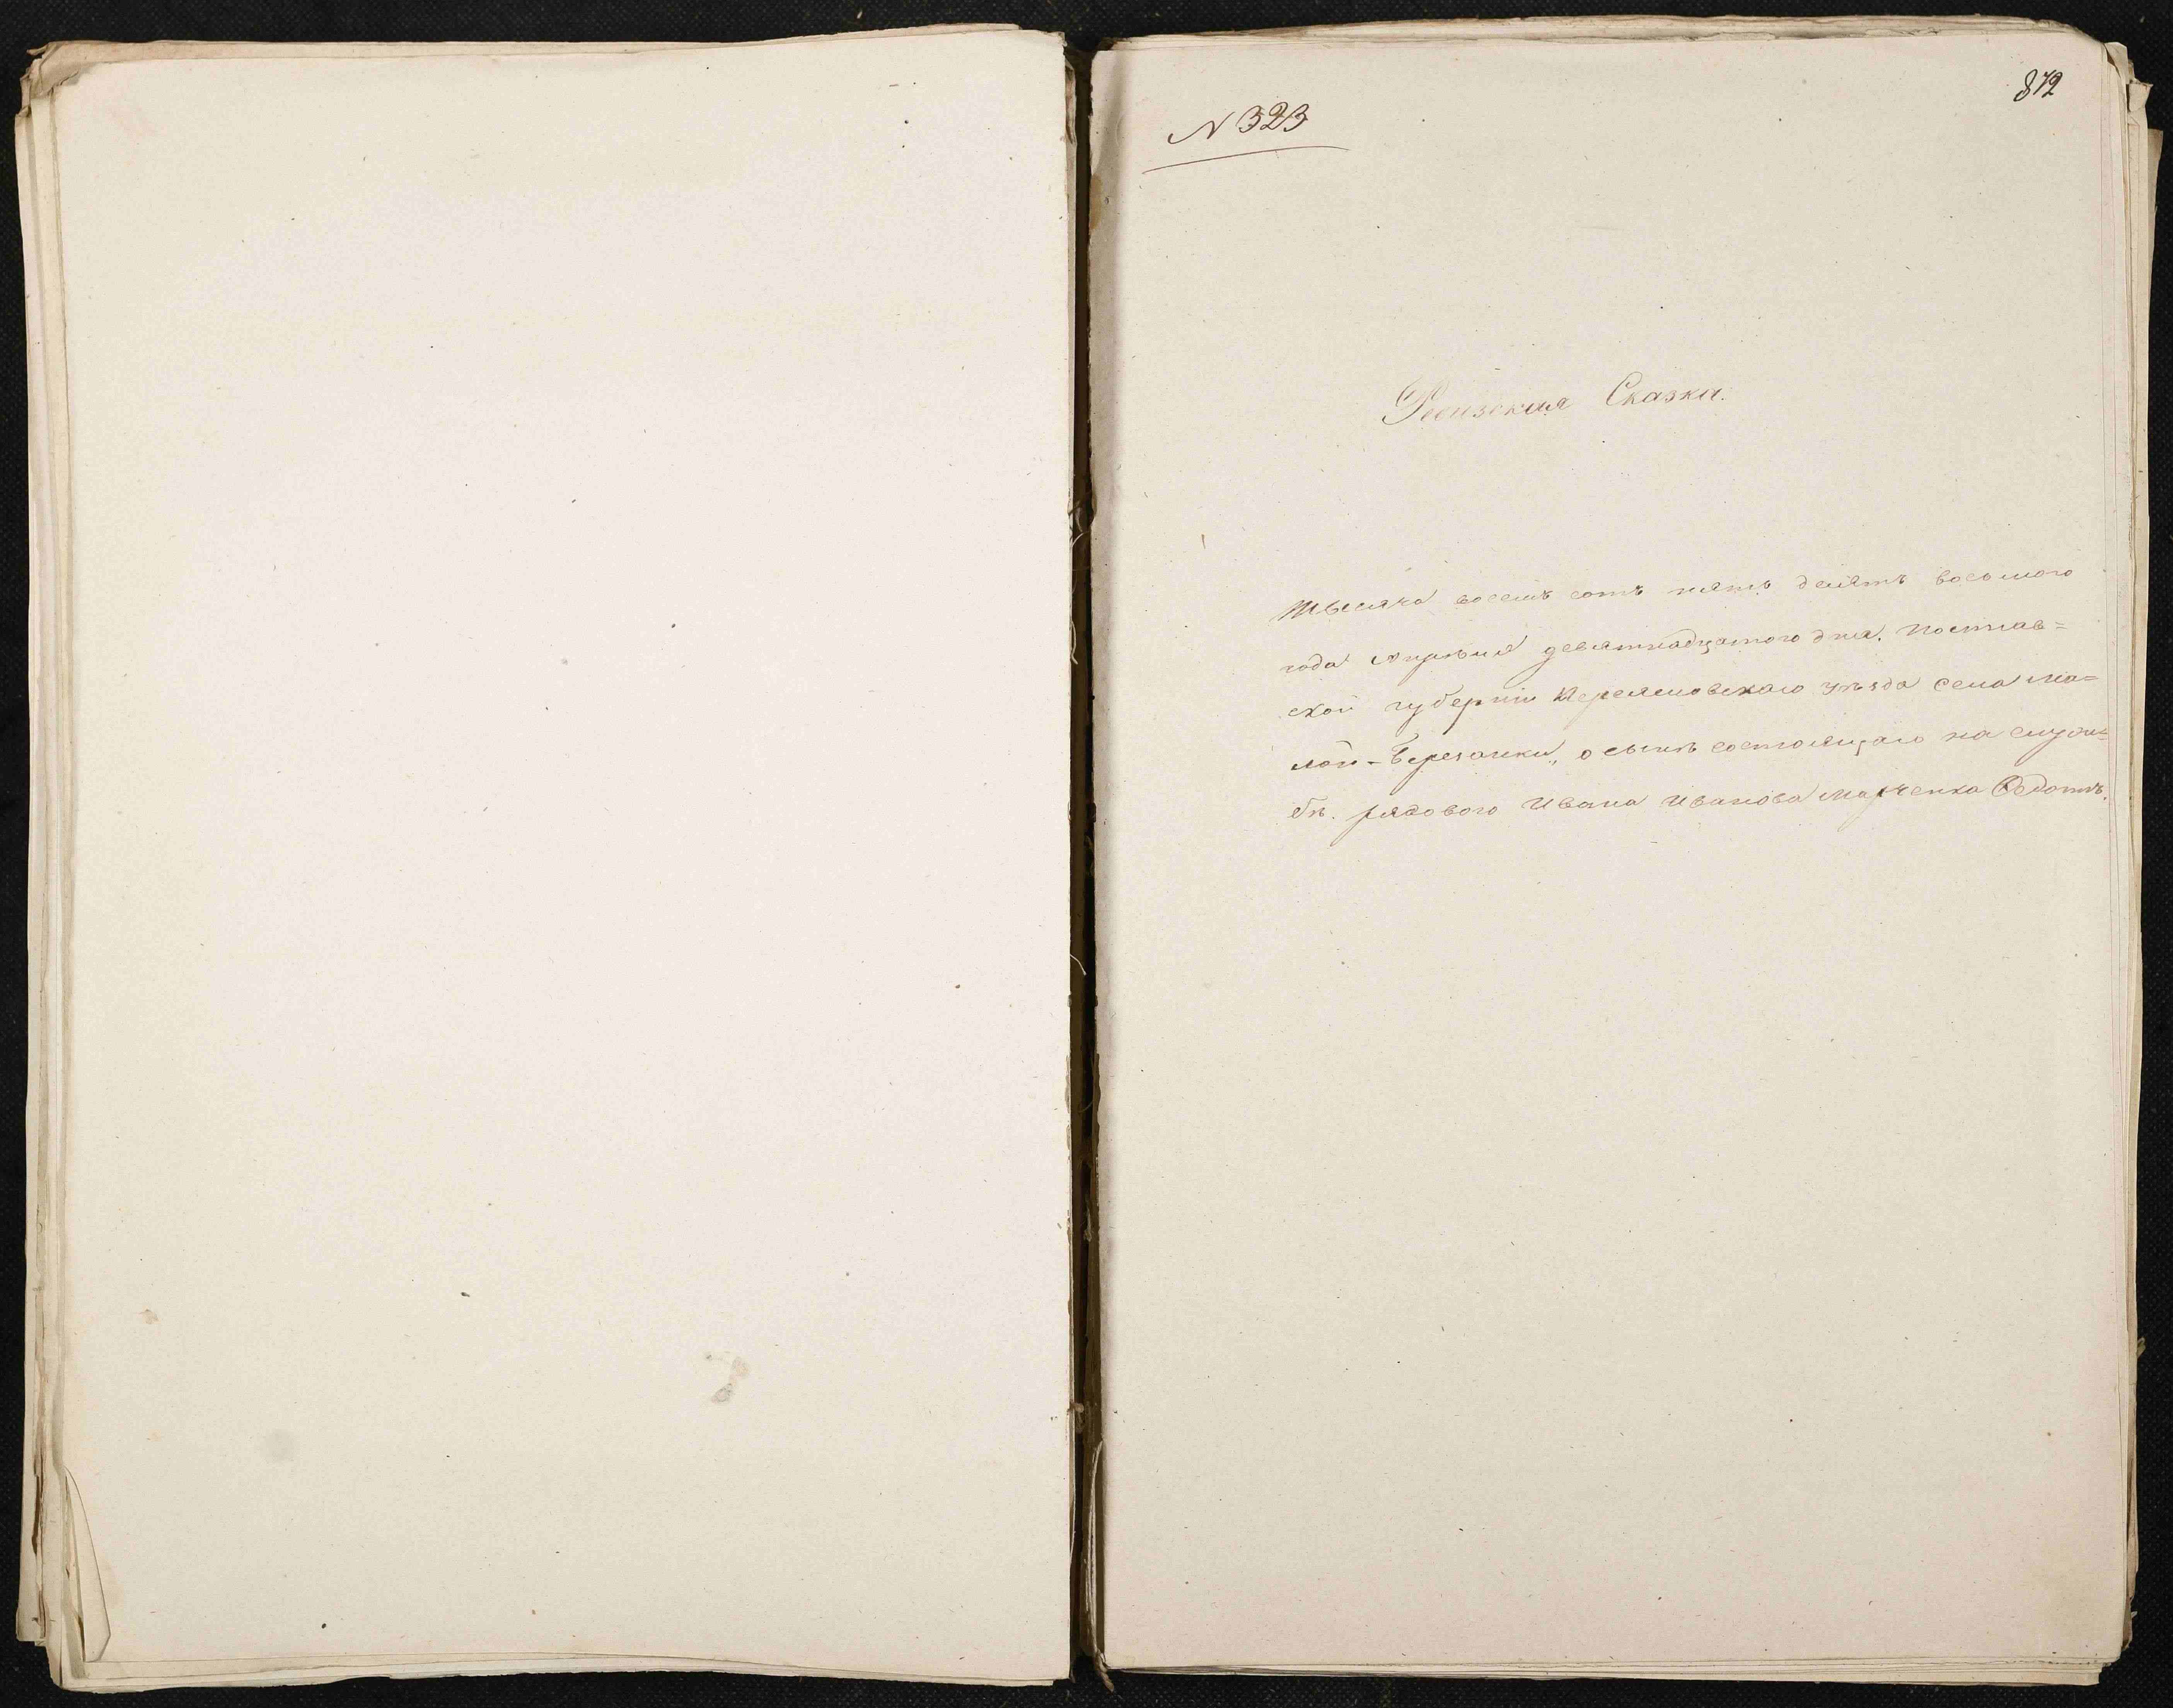 872
N 323
Ревизская Сказка.
Тысяча восемь сотъ пять десятъ восьмого
года Апрѣля девятнадцатого дня. Полтав=
ской губерніи Переяславскаго уѣзда села Ма=
лой-Березанки, о сынѣ состоящаго на служ=
бѣ. рядового Ивана Иванова Марченка Федотъ.